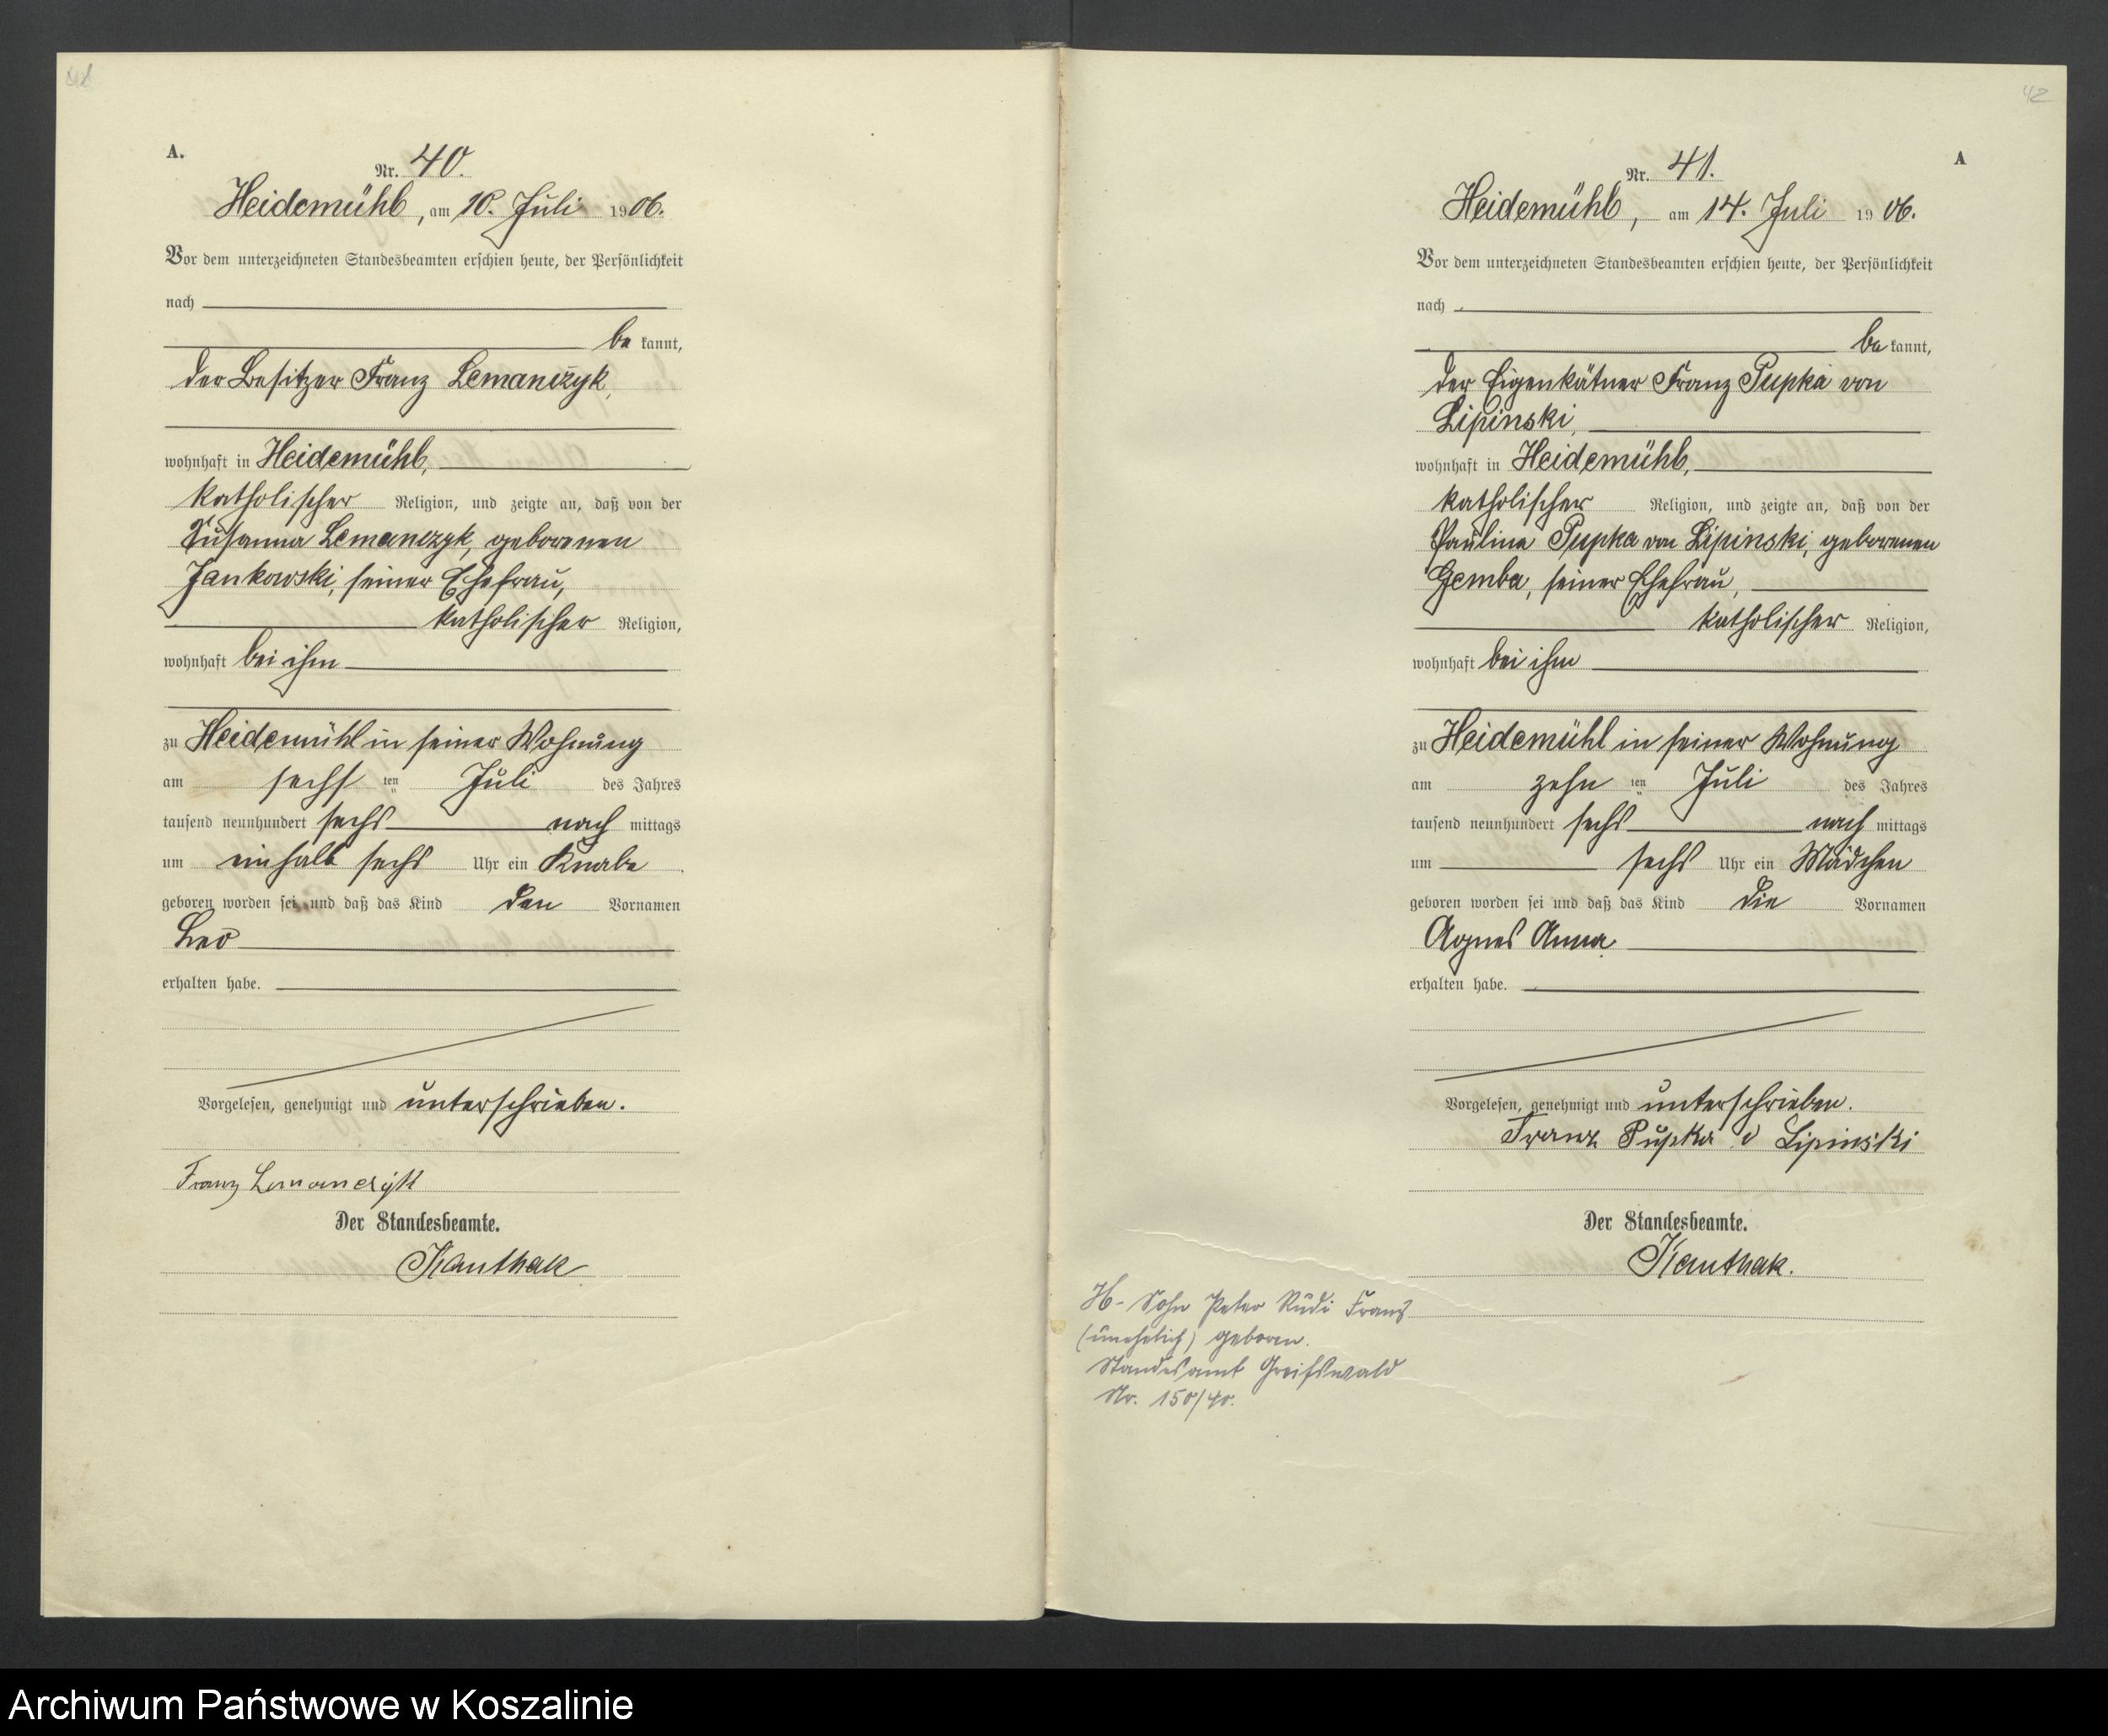 A.
Nr. 40.
Heidemühl, am 10. Juli 1906.
Vor dem unterzeichneten Standesbeamten erschien heute, der Persönlichkeit
nach
be kannt,
der Besitzer Franz Lemanczyk,
wohnhaft in Heidemühl,
katholischer Religion, und zeigte an, daß von der
Susanna Lemanczyk, geborenen
Jankowski, seiner Ehefrau,
katholischer Religion,
wohnhaft bei ihm
zu Heidemühl in seiner Wohnung
am sechs ten Juli des Jahres
tausend neunhundert sechs nach mittags
um einhalb sechs Uhr ein Knabe
geboren worden sei und daß das Kind den Vornamen
Leo
erhalten habe.
Vorgelesen, genehmigt und unterschrieben.
Franz Lemanczyk
Der Standesbeamte.
Kauthak
42
A
Nr. 41.
Heidemühl, am 14. Juli 1906.
Vor dem unterzeichneten Standesbeamten erschien heute, der Persönlichkeit
nach
be kannt,
der Eigenkätner Franz Pupka von
Lipinski,
wohnhaft in Heidemühl,
katholischer Religion, und zeigte an, daß von der
Paulina Pupka von Lipinski, geborenen
Gemba, seiner Ehefrau,
katholischer Religion,
wohnhaft bei ihm
zu Heidemühl in seiner Wohnung
am zehn ten Juli des Jahres
tausend neunhundert sechs nach mittags
um sechs Uhr ein Mädchen
geboren worden sei und daß das Kind die Vornamen
Agnes Anna
erhalten habe.
Vorgelesen, genehmigt und unterschrieben.
Franz Pupka v Lipinski
Der Standesbeamte.
Kauthak.
H- Sohn Peter Rudi Franz
(unehelich) geboren.
Standesamt Greifswald
Nr. 150/40.
Archiwum Państwowe w Koszalinie